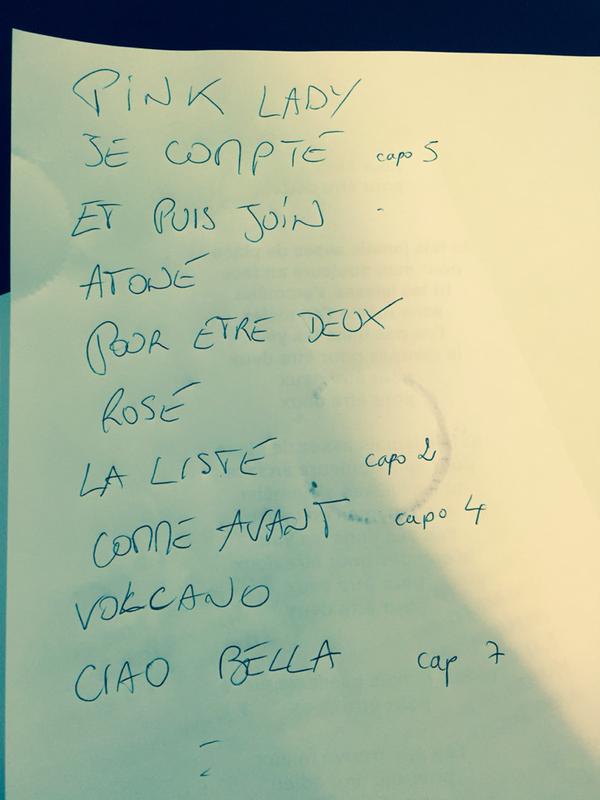 PINK LADY
JE COMPTE capo 5
ET PUIS JOIN
ATONE
POUR ETRE DEUX
ROSE
LA LISTE capo 2
COMME AVANT capo 4
VOLCANO
CIAO BELLA cap 7